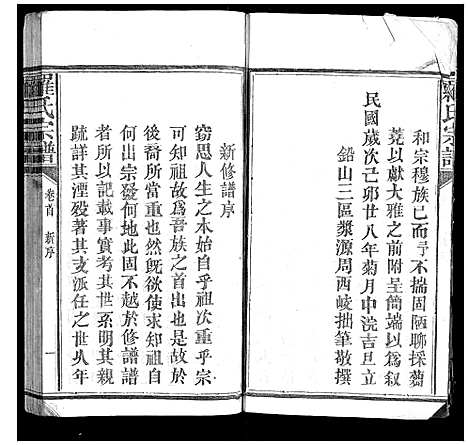 羅氏宗譜
和宗穆族已而予不揣固陋聊採蒭
蕘以獻大雅之前附呈簡端以爲叙
民國歲次己卯廿八年菊月中浣吉旦立
鉛山三區漿源周西崚拙筆敬撰
新修譜序
竊思人生之本始自乎祖次重乎宗
可知祖故爲吾族之首出也是故於
後裔所當重也然旣欲使求知祖自
何出宗發何地此固不越於修譜譜
者所以記載事實考其世系明其親
疏詳其湮歿著其支派任之世久年
羅氏宗譜
卷首
新序
一